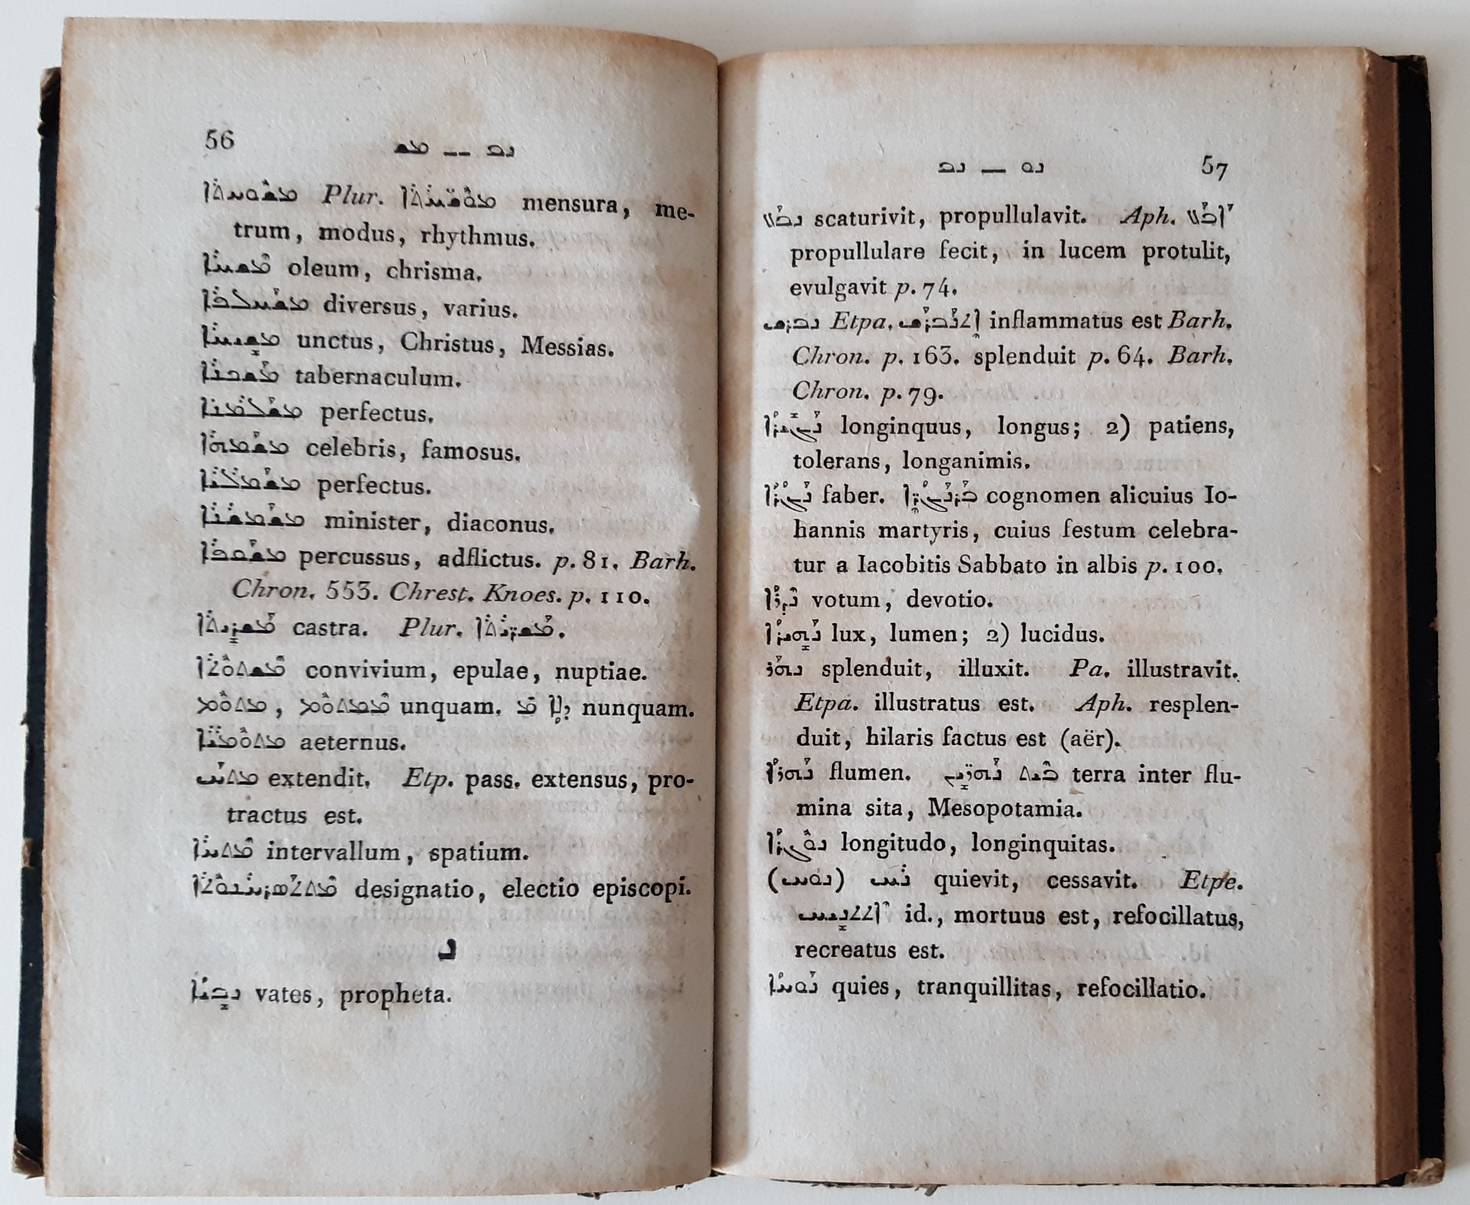 56
ܡܫ — ܢܒ
ܡܫܘܚܬܐ Plur. ܡܘܫܚܬܐ mensura, me-
trum, modus, rhythmus.
ܡܫܚܐ oleum, chrisma.
ܡܫܚܠܦܐ diversus, varius.
ܡܫܝܚܐ unctus, Christus, Messias.
ܡܫܟܢܐ tabernaculum.
ܡܫܠܡܢܐ perfectus.
ܡܫܡܗܐ celebris, famosus.
ܡܫܡܠܝܐ perfectus.
ܡܫܡܫܢܐ minister, diaconus.
percussus, adflictus. p. 81. Barh.
Chron. 553. Chrest. Knoes. p. 110.
ܡܫܪܝܬܐ castra. Plur. ܡܫܪ̈ܝܬܐ.
ܡܫܬܘܬܐ convivium, epulae, nuptiae.
ܡܬܘܡ, ܡܡܬܘܡ unquam. nunquam.
ܡܬܘܡܝܐ aeternus.
ܡܬܚ extendit. Etp. pass. extensus, pro-
tractus est.
ܡܬܚܐ intervallum, spatium.
ܡܬܬܣܪܚܢܘܬܐ designatio, electio episcopi.
ܢ
ܢܒܝܐ vates, propheta.
ܢܒ — ܢܘ 57
ܢܒܥ scaturivit, propullulavit. Aph. ܐܒܥ
propullulare fecit, in lucem protulit,
evulgavit p. 74.
ܢܒܪܫ Etpa. ܐܬܢܒܪܫ inflammatus est Barh.
Chron. p. 163. splenduit p. 64. Barh.
Chron. p. 79.
ܢܓܝܪܐ longinquus, longus; 2) patiens,
tolerans, longanimis.
ܢܓܪܐ faber. ܒܪܢܓܪܐ cognomen alicuius Io-
hannis martyris, cuius festum celebra-
tur a Iacobitis Sabbato in albis p. 100.
ܢܕܪܐ votum, devotio.
ܢܗܝܪܐ lux, lumen; 2) lucidus.
ܢܗܪ splenduit, illuxit. Pa. illustravit.
Etpa. illustratus est. Aph. resplen-
duit, hilaris factus est (aër).
ܢܗܪܐ flumen. ܒܝܬ ܢܗܪ̈ܝܢ terra inter flu-
mina sita, Mesopotamia.
ܢܘܓܪܐ longitudo, longinquitas.
(ܢܘܚ) ܢܚ quievit, cessavit. Etpe.
ܐܬܬܢܝܚ id., mortuus est, refocillatus,
recreatus est.
ܢܘܚܐ quies, tranquillitas, refocillatio.